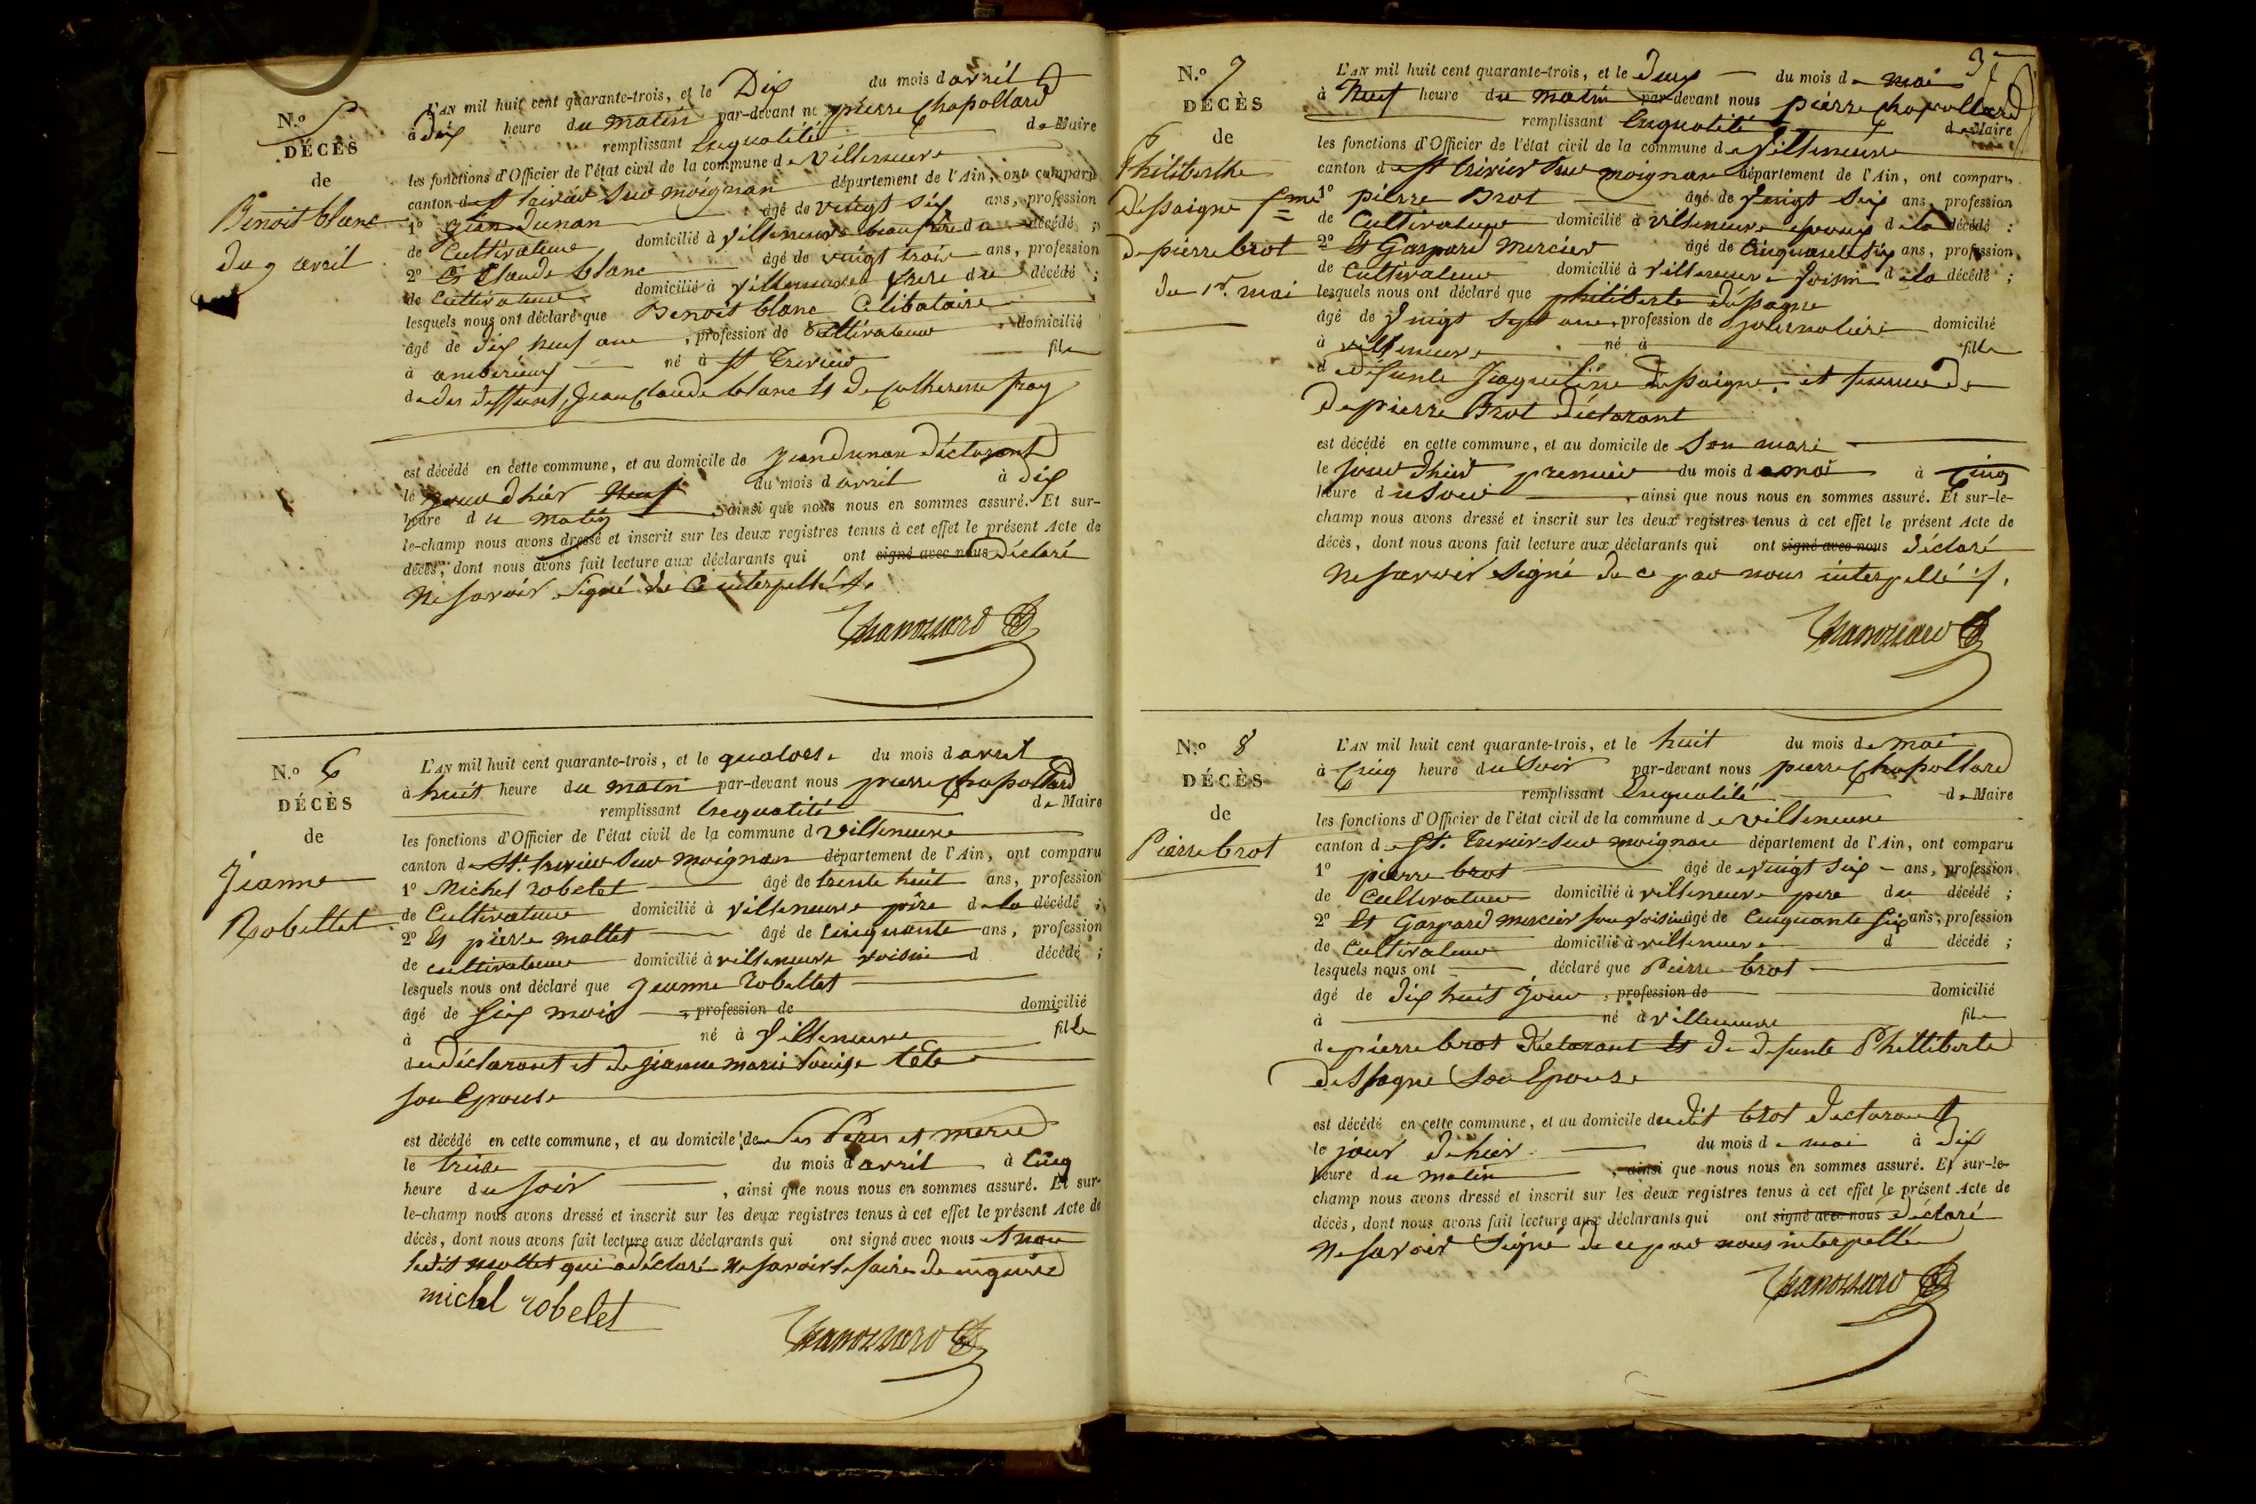 N.º 5
DÉCÈS
de
Benoit blanc
du 9 avril
L'AN mil huit cent quarante-trois, et le Dix du mois d avril
à dix heure du matin par-devant nous pierre Chapollard
remplissant En qualité de Maire
les fonctions d'Officier de l'état civil de la commune de Villeneuve
canton de St trivier Sur moignan département de l'Ain, ont comparu
1º jean dunan âgé de vingt six ans, profession
de Cultivateur domicilié à Villeneuve beau frère du décédé ;
2º Et Claude blanc âgé de vingt trois ans, profession
de Cultivateur domicilié à Villeneuve frere du décédé ;
lesquels nous ont déclaré que Benoit blanc Célibataire
âgé de dix neuf ans, profession de Cultivateur domicilié
à amberieux né à St Trivier fils
de des deffunt, jean Claude blanc Et de Catherine
est décédé en cette commune, et au domicile de jean dunan déclarant
le jour dhier Neuf du mois d avril à dix
heure du matin, ainsi que nous nous en sommes assuré. Et sur-
le-champ nous avons dressé et inscrit sur les deux registres tenus à cet effet le présent Acte de
décès, dont nous avons fait lecture aux déclarants qui ont signé avec nous Déclaré
Ne Savoir Signé de Ce interpellé /.
N.º 6
DÉCÈS
de
Jeanne
Robellet
L'AN mil huit cent quarante-trois, et le quatorze du mois d avril
à huit heure du matin par-devant nous pierre Chapollard
remplissant En qualité de Maire
les fonctions d'Officier de l'état civil de la commune d villeneuve
canton de St. trivier Sur moignan département de l'Ain, ont comparu
1º Michel robelet âgé de trente huit ans, profession
de Cultivateur domicilié à villeneuve pere de la décédé ;
2º Et pierre mollet âgé de Cinquante ans, profession
de cultivateur domicilié à villeneuve voisin d décédé ;
lesquels nous ont déclaré que jeanne Robellet
âgé de six mois, profession de domicilié
à né à Villeneuve fille
du déclarant et de jeanne marie Louise tête
son Epouse
est décédé en cette commune, et au domicile de Ses Peres et meres
le treize du mois d avril à Cinq
heure du soir, ainsi que nous nous en sommes assuré. Et sur-
le-champ nous avons dressé et inscrit sur les deux registres tenus à cet effet le présent Acte de
décès, dont nous avons fait lecture aux déclarants qui ont signé avec nous Et non
ledit mollet qui a déclaré Ne savoir le faire de ce
michel robelet
N.º 7
DÉCÈS
de
Philiberthe
Dessaigne fme
de pierre brot
du 1r. mai
3
L'AN mil huit cent quarante-trois, et le deux du mois de mai
à Neuf heure du matin par-devant nous pierre chapollard
remplissant En qualité de Maire
les fonctions d'Officier de l'état civil de la commune de Villeneuve
canton de St trivier Sur moignan département de l'Ain, ont comparu
1º pierre Brot âgé de Vingt Six ans, profession
de Cultivateur domicilié à Villeneuve époux de la décédé ;
2º Et Gaspard mercier âgé de Cinquante Six ans, profession
de Cultivateur domicilié à Villeneuve Voisin de la décédé ;
lesquels nous ont déclaré que philiberte déssagne
âgé de Vingt Sept ans, profession de journaliere domicilié
à villeneuve né à fille
de defunte Jaqueline dessaigne, et femme de
De pierre Brot déclarant
est décédé en cette commune, et au domicile de Son mari
le jour dhier premier du mois d mai à Cinq
heure du Soir, ainsi que nous nous en sommes assuré. Et sur-le-
champ nous avons dressé et inscrit sur les deux registres tenus à cet effet le présent Acte de
décès, dont nous avons fait lecture aux déclarants qui ont signé avec nous déclaré
Ne Savoir Signé de ce par nous interpellé /.
N.º 8
DÉCÈS
de
Pierre brot
L'AN mil huit cent quarante-trois, et le huit du mois de mai
à Cinq heure du Soir par-devant nous pierre Chapollard
remplissant En qualité de Maire
les fonctions d'Officier de l'état civil de la commune de villeneuve
canton de St. Trivier Sur moignan département de l'Ain, ont comparu
1º pierre brot âgé de vingt six ans, profession
de Cultivateur domicilié à villeneuve pere du décédé ;
2º Et Gaspard mercier son voisin âgé de Cinquante Six ans, profession
de Cultivateur domicilié à villeneuve d décédé ;
lesquels nous ont déclaré que Pierre brot
âgé de dix huit jour, profession de domicilié
à né à villeneuve fils
de pierre brot déclarant Et de defunte Phelliberte
deSsagne Son Epouse
est décédé en cette commune, et au domicile du dit brot declarant
le jour dehier du mois de mai à dix
heure du matin, ainsi que nous nous en sommes assuré. Et sur-le-
champ nous avons dressé et inscrit sur les deux registres tenus à cet effet le présent Acte de
décès, dont nous avons fait lecture aux déclarants qui ont signé avec nous déclaré
Ne Savoir Signé de ce par nous interpellé